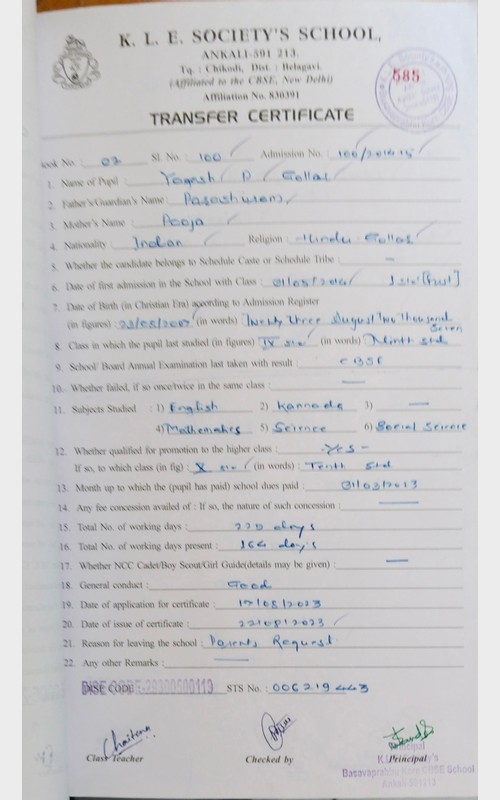 K. L. E. SOCIETY'S SCHOOL,
ANKALI-591 213.
Tq. : Chikodi, Dist. : Belagavi.
(Affiliated to the CBSE, New Delhi)
Affiliation No. 830391
585
TRANSFER CERTIFICATE
Book No. 02 Sl. No. 100 Admission No.
1. Name of Pupil Yogesh P. Gollar
2. Father's/Guardian's Name :
3. Mother's Name : Pooja
4. Nationality Indian Religion - Hindu Gollar
5. Whether the candidate belongs to Schedule Caste or Schedule Tribe : —
6. Date of first admission in the School with Class :
7. Date of Birth (in Christian Era) according to Admission Register
(in figures) : 23/08/2007 (in words) Twenty three August Two thousand
Seven
8. Class in which the pupil last studied (in figures) IX std (in words) Ninth std
9. School/ Board Annual Examination last taken with result : CBSE
10. Whether failed, if so once/twice in the same class : —
11. Subjects Studied : 1) English 2) Kannada 3) —
4) Mathematics 5) Science 6) Social Science
12. Whether qualified for promotion to the higher class : -Yes-
If so, to which class (in fig) : X std (in words) : Tenth Std
13. Month up to which the (pupil has paid) school dues paid : 31/03/2013
14. Any fee concession availed of : If so, the nature of such concession : —
15. Total No. of working days : 220 days
16. Total No. of working days present : 164 days
17. Whether NCC Cadet/Boy Scout/Girl Guide(details may be given) : —
18. General conduct : Good
19. Date of application for certificate : 17/08/2023
20. Date of issue of certificate : 22/08/2023
21. Reason for leaving the school : Parents Request.
22. Any other Remarks : —
DISE CODE STS No. : 006219
Chaitana
Class Teacher Checked by Principal
Principal
K.L.E. Society's
CBSE School